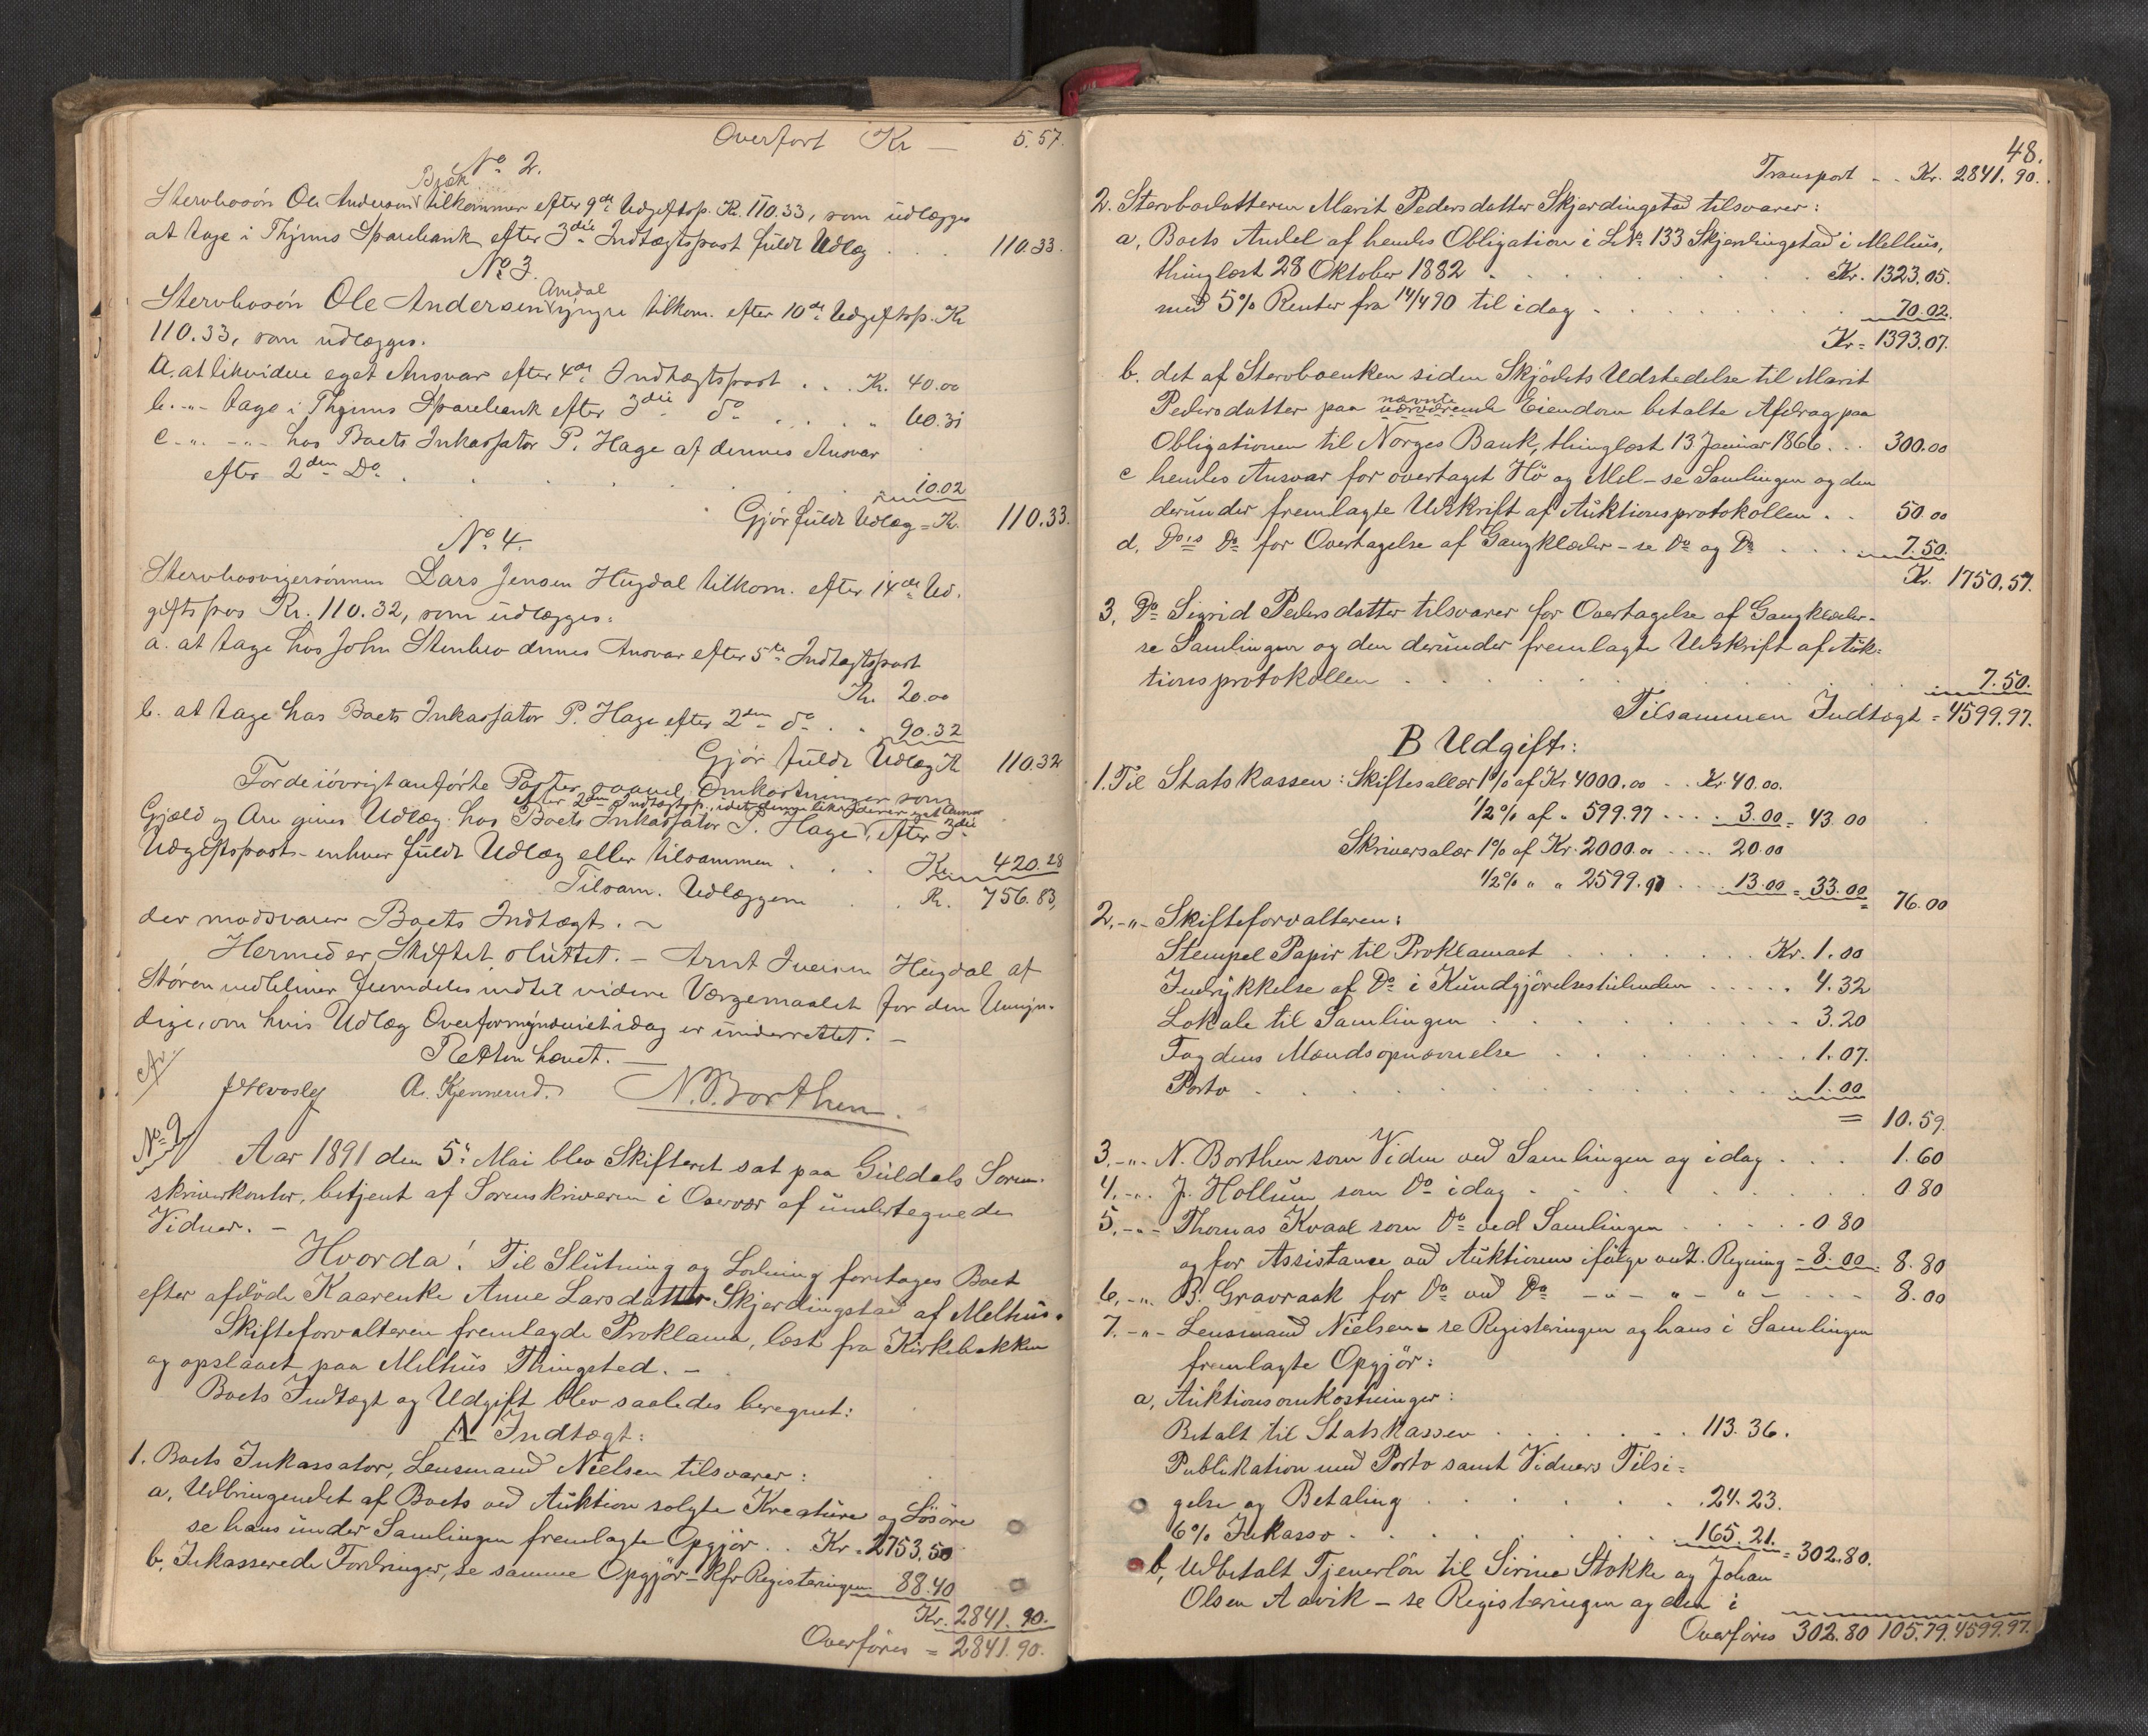 Overført Kr — 5.57.
No 2.
Bjerk
Stervbosøn Ole Andersen tilkommer efter 9de Udgiftsp. Kr. 110.33, som udlægges
at tage i Sparebank efter 3die Indtægtspost fuldt Udlæg . . . 110.33.
No 3.
Amdal
Stervbosøn Ole Andersen yngre tilkom. efter 10de Udgiftsp. Kr
110.33, som udlægges.
a. at likvidere eget Ansvar efter 4de Indtægtspost . . . Kr. 40.00
b. -"- tage i Sparebank efter 3die do . . . . " 60.31
c -"- -"- hos Boets Inkassator P. Hage af dennes Ansvar
efter 2den Do . . . . . . . . 10.02
Gjør fuldt Udlæg = Kr. 110.33.
No 4.
Stervbosvigersønnen Lars Jensen Hugdal tilkom. efter 14de Ud-
giftspos Kr. 110.32, som udlægges:
a. at tage hos John Stenbro dennes Ansvar efter 5te Indtægtspost
Kr. 20.00
b. at tage hos Boets Inkassator P. Hage efter 2den do . . 90.32
Gjør fuldt Udlæg Kr 110.32
For de iøvrigt anførte Poster, saavel Omkostninger som
efter 2den Indtægtsp., idet denne likviderer eget Ansvar
Gjæld og Arv gives Udlæg hos Boets Inkassator P. Hage, efter 3die
Udgiftspost - enhver fuldt Udlæg eller tilsammen . . . Kr. 420.28
Tilsam. Udlæggene . . Kr. 756.83,
der modsvarer Boets Indtægt. ~
Hermed er Skiftet sluttet. - Arnt Iversen Hugdal af
Støren vedbliver fremdeles indtil videre Værgemaalet for den Umyn-
dige, om hvis Udlæg Overformynderiet idag er underrettet. -
Retten hævet. —
A. Kjennerud. N. Borthen.
No 2
Aar 1891 den 5te Mai blev Skifteret sat paa Guldals Soren-
skriverkontor, betjent af Sorenskriveren i Overvær af undertegnede
Vidner. -
Hvorda! Til Slutning og Lodning foretages Boet
efter afdøde Kaarenke Anne Larsdatter Skjerdingstad af Melhus.
Skifteforvalteren fremlagde Proklama, læst fra Kirkebakken
og opslaaet paa Melhus Thingsted. -
Boets Indtægt og Udgift blev saaledes beregnet:
A Indtægt:
1. Boets Inkassator, Lensmand Nielsen tilsvarer:
a, Udbringendet af Boets ved Auktion solgte Kreature og Løsøre
se hans under Samlingen fremlagte Opgjør . . Kr. 2753.50
b, Inkasserede Fordringer, se samme Opgjør - kfr Registeringen 88.40
Kr. 2841.90.
Overføres = 2841.90.
48.
Transport - - Kr. 2841.90.
2. Stervbodatteren Marit Pedersdatter Skjerdingstad tilsvarer:
a, Boets Andel af hendes Obligation i LNo 133 Skjerdingstad i Melhus,
thinglæst 28 Oktober 1882 . . . . . . Kr. 1323.05.
med 5% Renter fra 14/4 90 til idag . . . . . . 70.02.
Kr = 1393.07.
b. det af Stervboenken siden Skjødets Udstedelse til Marit
nævnte
Pedersdatter paa nærværende Eiendom betalte Afdrag paa
Obligationen til Norges Bank, thinglæst 13 Januar 1866 . . . 300.00
c hendes Ansvar for overtaget Hø og Mel - se Samlingen og den
derunder fremlagte Udskrift af Auktionsprotokollen . . 50.00
d, Do's Do for Overtagelse af Gangklæder - se Do og Do . . . . 7.50.
Kr. 1750.57.
3, Do Sigrid Pedersdatter tilsvarer for Overtagelse af Gangklæder-
se Samlingen og den derunder fremlagte Udskrift af Auk=
tionsprotokollen . . . . . . . . . 7.50.
Tilsammen Indtægt = 4599.97.
B Udgift:
1. Til Statskassen: Skiftesallær 1% af Kr 4000.00 . . Kr. 40.00.
1/2% af " 599.97 . . . . 3.00 = 43.00
Skriversalær 1% af Kr. 2000.00 . . . . 20.00
1/2% " " 2599.97 . . . . 13.00 = 33.00 = 76.00
2. -"- Skifteforvalteren:
Stempel Papir til Proklamaet . . . . . . Kr. 1.00
Indrykkelse af Do i Kundgjørelsestidenden . . . . . 4.32
Lokale til Samlingen . . . . . . . . 3.20
Tog dens Mandsopnævnelse . . . . . . . 1.07.
Porto . . . . . . . . . . 1.00
= 10.59.
3. -"- N. Borthen som Vidne ved Samlingen og idag . . . 1.60
4. -"- J. Hollum som Do idag . . . . . . . 0 80
5. -"- Thomas Kvaal som Do ved Samlingen . . . . . 0 80
og for Assistance ved Auktionen ifølge vedt. Regning - 8.00 = 8.80
6. -"- B. Gravraak for Do ved Do -"- " - " - . . . 8.00
7. -"- Lensmand Nielsen - se Registeringen og hans i Samlingen
fremlagte Opgjør:
a, Auktionsomkostninger:
Betalt til Statskassen . . . . . . . 113.36.
Publikation med Porto samt Vidners Tilsi=
gelse og Betaling . . . . . . . 24.23.
6% Inkasso . . . . . . . . . 165.21. = 302.80.
b, Udbetalt Tjenerløn til Sirine Stokke og Johan
Olsen Aavik - se Registeringen og den i
Overføres 302.80 105.79. 4599.97.